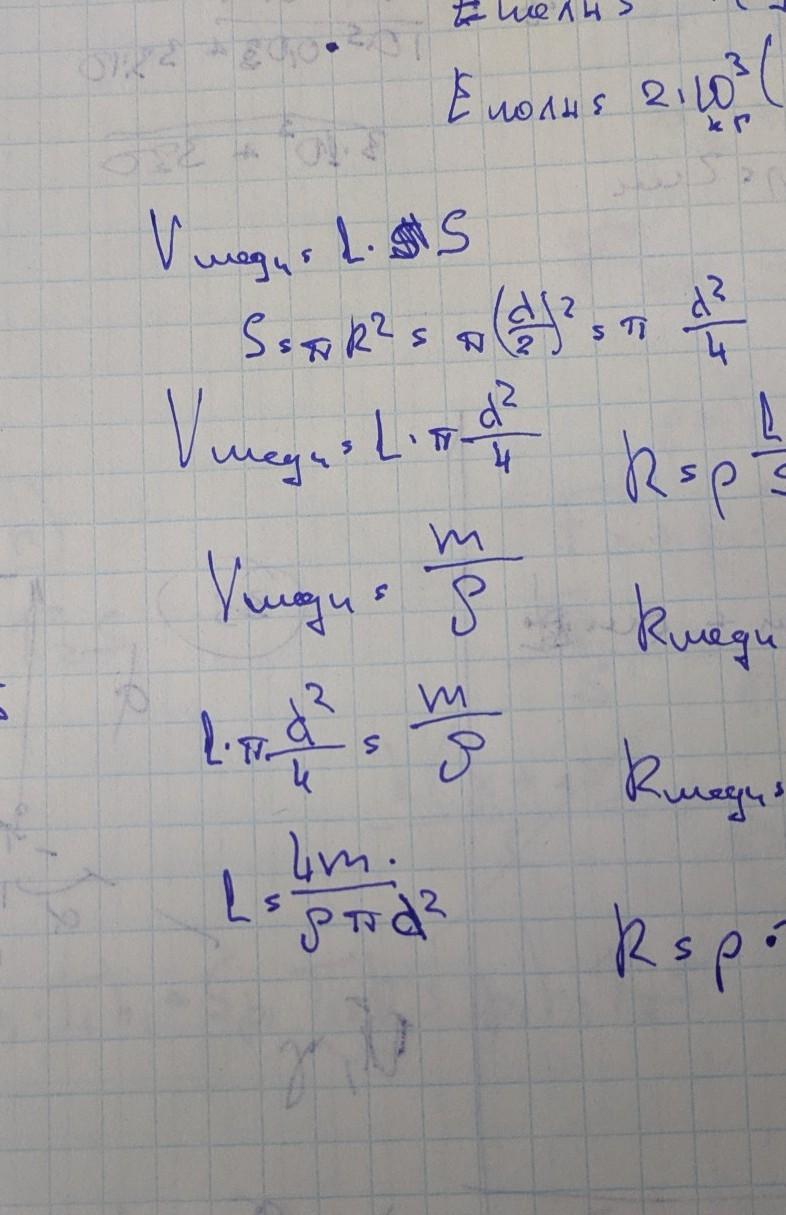 Eполн =
Eполн = 2·10³ (
кг
Vмеди = L· S
S = πR² = π(d/2)² = π d²/4
Vмеди = L·π d²/4
R = ρ L/S
Vмеди = m/ρ
Rмеди
L·π d²/4 = m/ρ
Rмеди =
L = 4m/ρπd²
R = ρ ·